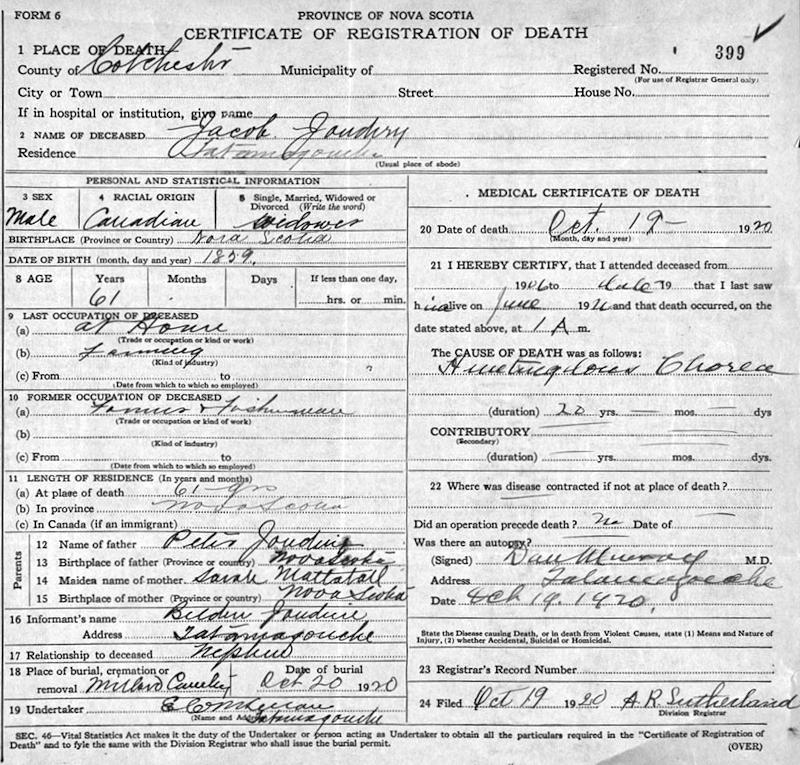 FORM 6
PROVINCE OF NOVA SCOTIA
CERTIFICATE OF REGISTRATION OF DEATH
399
1 PLACE OF DEATH—
County of Colchester Municipality of Registered No.
(For use of Registrar General only)
City or Town Street House No.
If in hospital or institution, give name
2 NAME OF DECEASED Jacob Joudry
Residence Tatamagouche
(Usual place of abode)
PERSONAL AND STATISTICAL INFORMATION
3 SEX 4 RACIAL ORIGIN 5 Single, Married, Widowed or Divorced (Write the word)
Male Canadian Widower
BIRTHPLACE (Province or Country) Nova Scotia
DATE OF BIRTH (month, day and year) 1859
8 AGE Years Months Days If less than one day,
61 hrs. or min.
9 LAST OCCUPATION OF DECEASED
(a) at Home
(Trade or occupation or kind of work)
(b) Farming
(Kind of industry)
(c) From to
(Date from which to which so employed)
10 FORMER OCCUPATION OF DECEASED
(a) Farmer & Fisherman
(Trade or occupation or kind of work)
(b)
(Kind of industry)
(c) From to
(Date from which to which so employed)
11 LENGTH OF RESIDENCE (In years and months)
(a) At place of death 61 yrs
(b) In province Nova Scotia
(c) In Canada (if an immigrant)
Parents
12 Name of father Peter
13 Birthplace of father (Province or country) Nova Scotia
14 Maiden name of mother Sarah Mattatall
15 Birthplace of Mother (Province or country) Nova Scotia
16 Informant's name
Address Tatamagouche
17 Relationship to deceased Nephew
18 Place of burial, cremation or removal Date of burial
Oct 20 1920
19 Undertaker
(Name and Address) Tatamagouche
MEDICAL CERTIFICATE OF DEATH
20 Date of death Oct. 19— 1920
(Month, day and year)
21 I HEREBY CERTIFY, that I attended deceased from
1906 to date 19 that I last saw
h alive on June 19 and that death occurred, on the
date stated above, at 1 A m.
The CAUSE OF DEATH was as follows:
Huntingtons Chorea
(duration) 20 yrs. — mos. — dys
CONTRIBUTORY
(Secondary)
(duration) yrs. mos. dys.
22 Where was disease contracted if not at place of death?
Did an operation precede death? No Date of
Was there an autopsy?
(Signed) Dan Murray M.D.
Address Tatamagouche
Date Oct 19. 1920.
State the Disease causing Death, or in death from Violent Causes, state (1) Means and Nature of
Injury, (2) whether Accidental, Suicidal or Homicidal.
23 Registrar's Record Number
24 Filed Oct 19 1920 A R Sutherland
Division Registrar
SEC. 46—Vital Statistics Act makes it the duty of the Undertaker or person acting as Undertaker to obtain all the particulars required in the "Certificate of Registration of
Death" and to fyle the same with the Division Registrar who shall issue the burial permit.
(OVER)